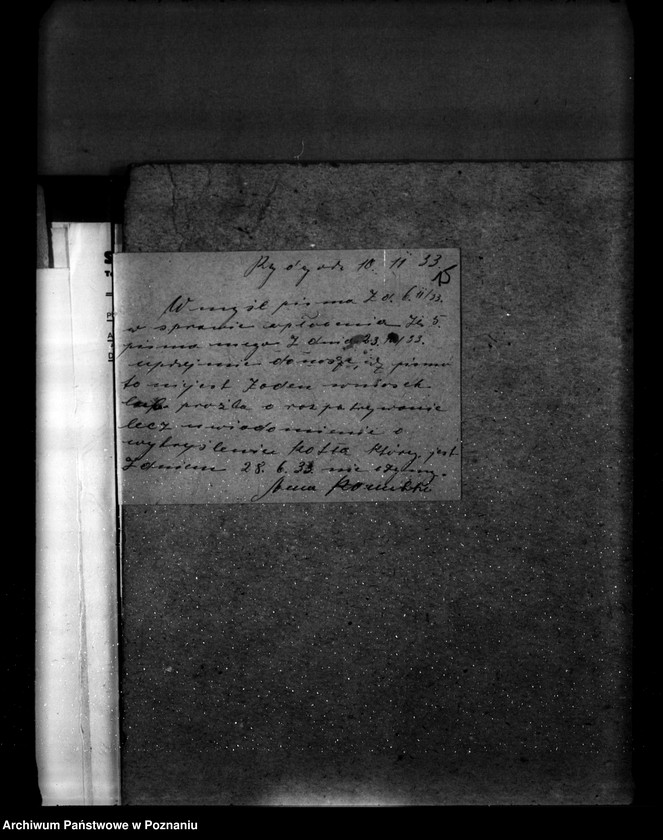 10. 11 33
15
W myśl pisma z d. 6.11/33.
w sprawie opłacenia zł 5.
pisma mego z dnia 23. 33.
uprzejmie donoszę, iż pismo
to nijest żaden wniosek
lub prożba o rozpatrywanie
lecz uwiadomienie o
wykryślenie kotła który jest
z dniem 28. 6. 33 nie czynny.
Archiwum Państwowe w Poznaniu